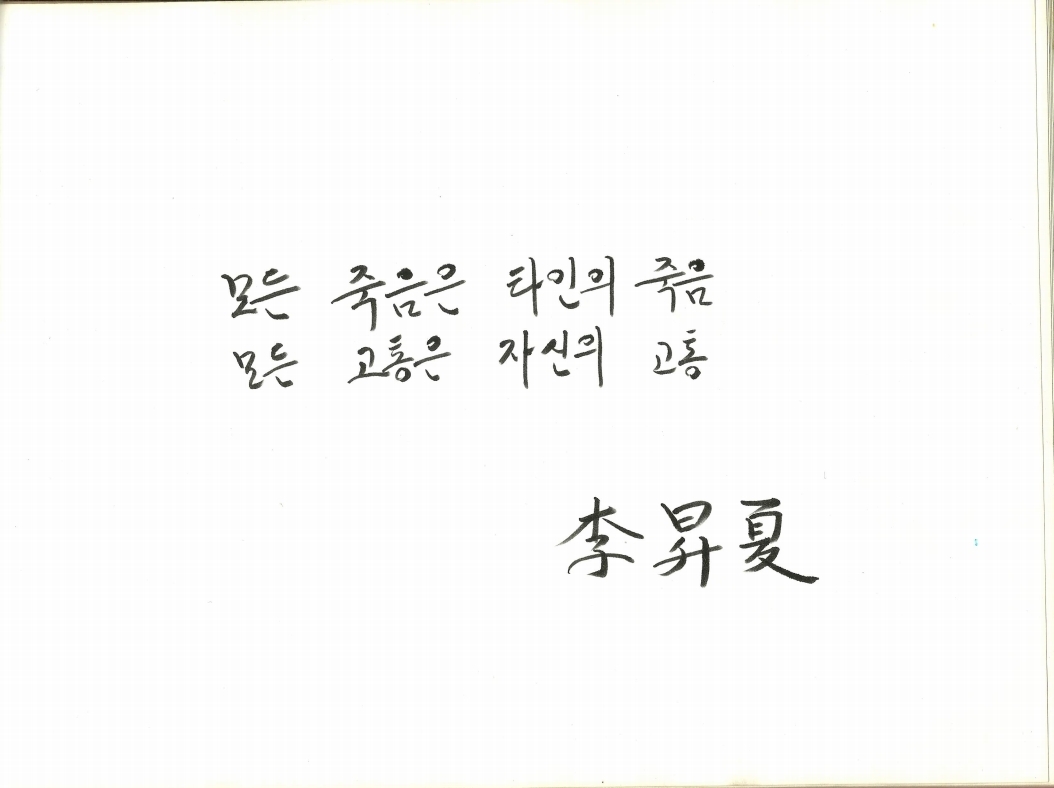 모든 죽음은 타인의 죽음
모든 고통은 자신의 고통
李昇夏